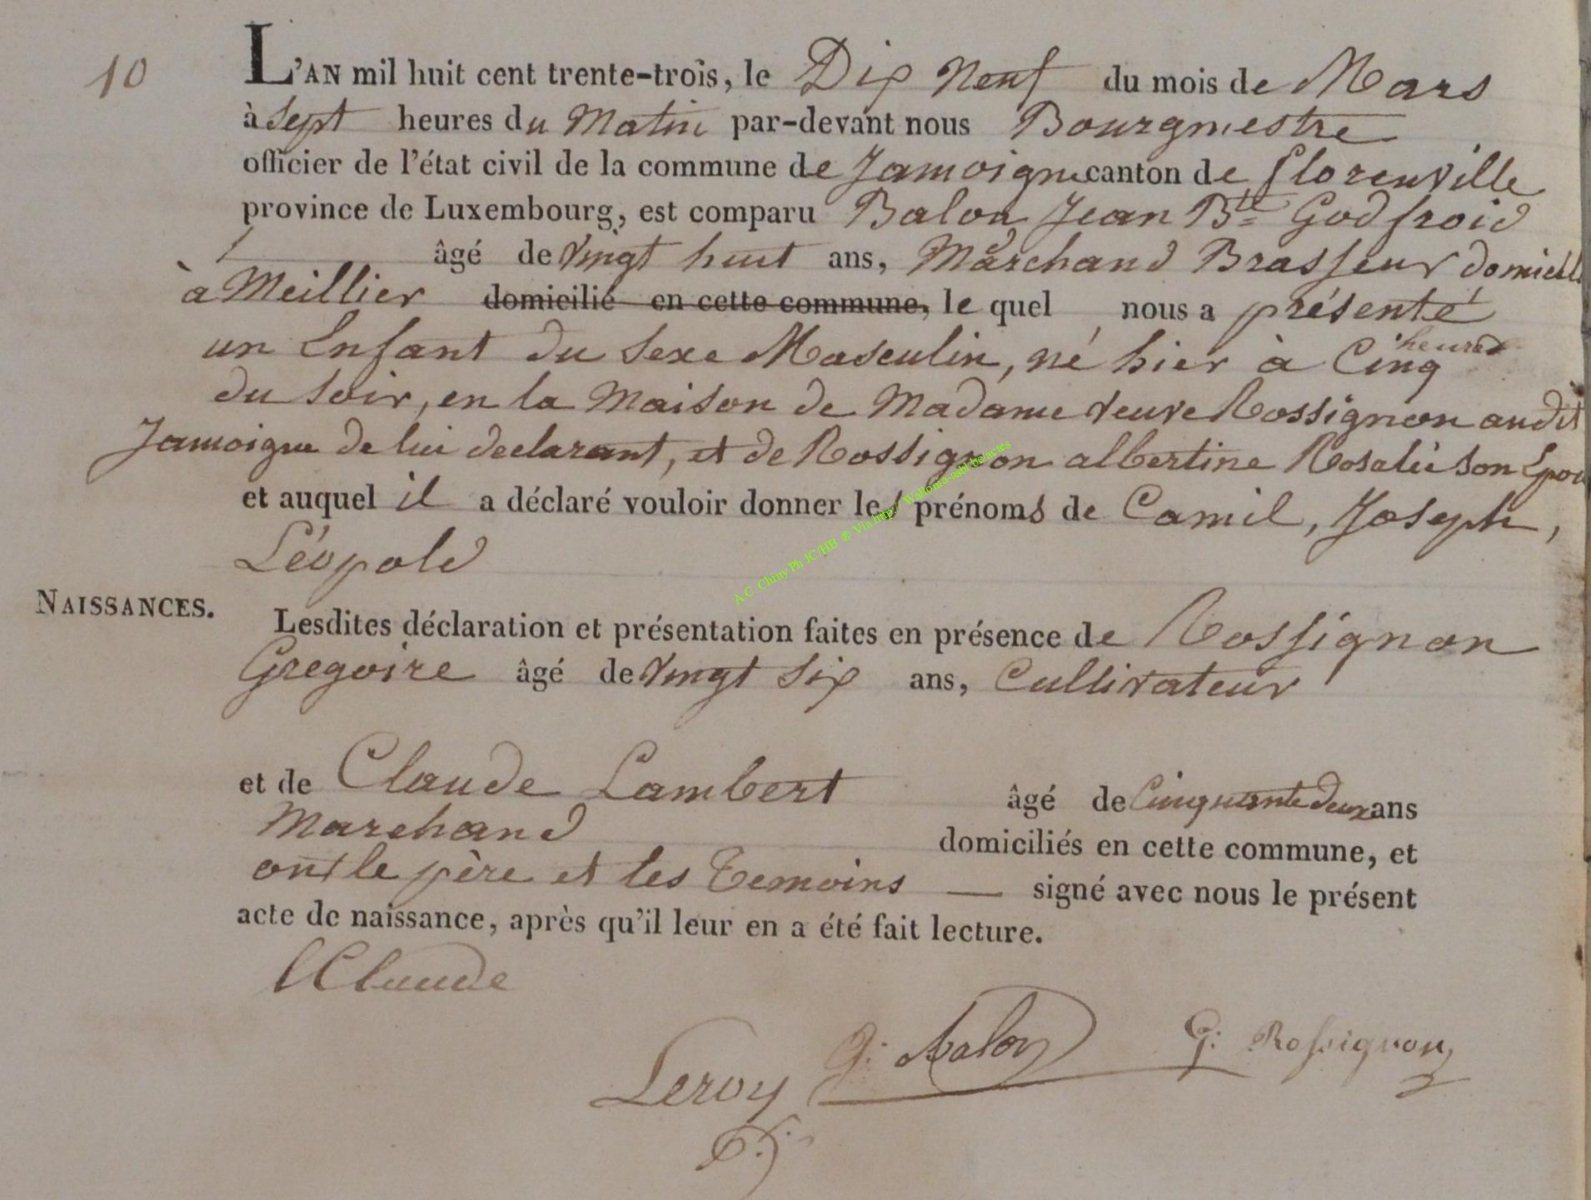 10
L'AN mil huit cent trente-trois, le Dix Neuf du mois de Mars
à sept heures du Matin par-devant nous Bourgmestre
officier de l'état civil de la commune de Jamoigne canton de Florenville
province de Luxembourg, est comparu Balon Jean Bte Godfroid
âgé de vingt huit ans, Marchand Brasseur domicilié
à Meillier domicilié en cette commune, le quel nous a présenté
un Enfant du Sexe Masculin, né hier à Cinq heures
du Soir, en la Maison de Madame veuve Rossignon audit
Jamoigne de lui declarant, et de Rossignon albertine Rosalie son Epou
et auquel il a déclaré vouloir donner les prénoms de Camil, Joseph,
Léopold
NAISSANCES.
Lesdites déclaration et présentation faites en présence de Rossignon
Gregoire âgé de vingt Six ans, Cultivateur
et de Claude Lambert âgé de Cinquante deux ans
Marchand domiciliés en cette commune, et
ont le père et les Temoins — signé avec nous le présent
acte de naissance, après qu'il leur en a été fait lecture.
LClaude
G: Balon G: Rossignon
Leroy